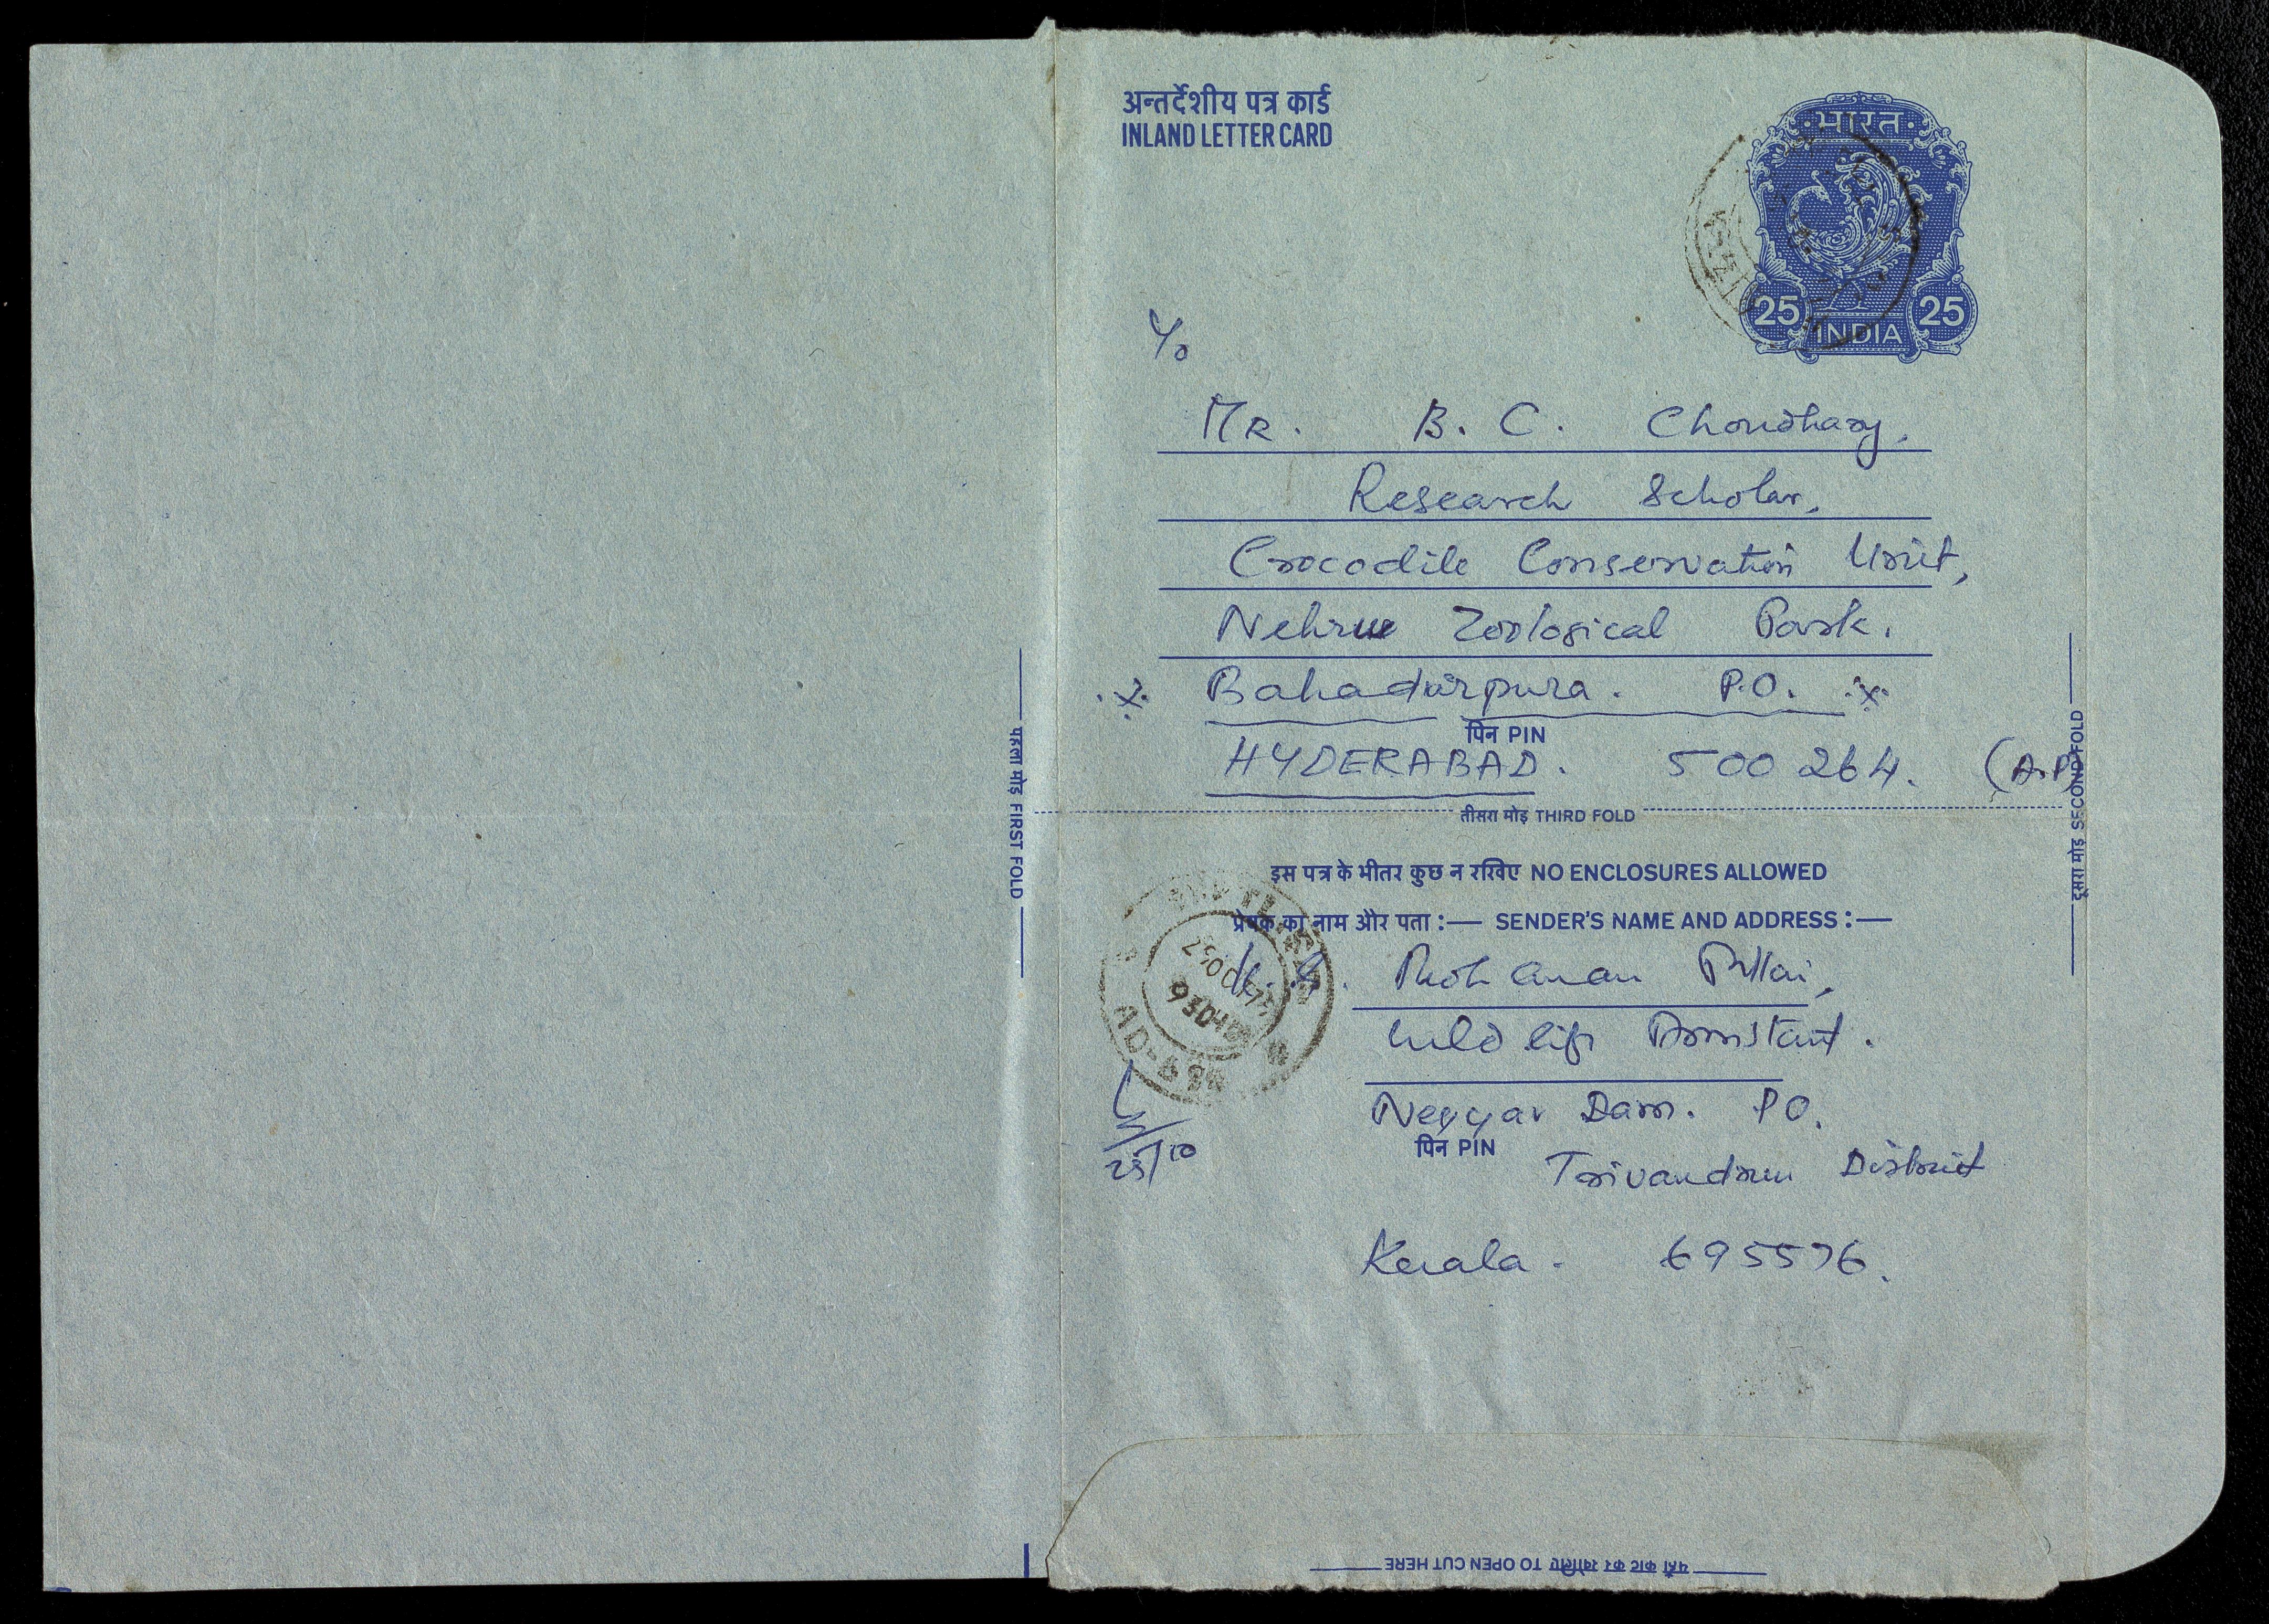 अन्तर्देशीय पत्र कार्ड
INLAND LETTER CARD
भारत
25 25
INDIA
T/o
MR. B. C. Choudhary,
Research Scholar,
Crocodile Conservation Unit,
Nehru Zoological Park.
Bahadurpura. P.O.
पिन PIN
HYDERABAD. 500 264. (A.P)
पहला मोड़ FIRST FOLD
दूसरा मोड़ SECOND FOLD
तीसरा मोड़ THIRD FOLD
इस पत्र के भीतर कुछ न रखिए NO ENCLOSURES ALLOWED
प्रेषक का नाम और पता :— SENDER'S NAME AND ADDRESS :—
Mohanan Pillai,
Wild life Assistant.
Neyyar Dam. PO.
पिन PIN
Trivandrum District
Kerala. 695576.
25/10
यहाँ काट कर खोलिए TO OPEN CUT HERE